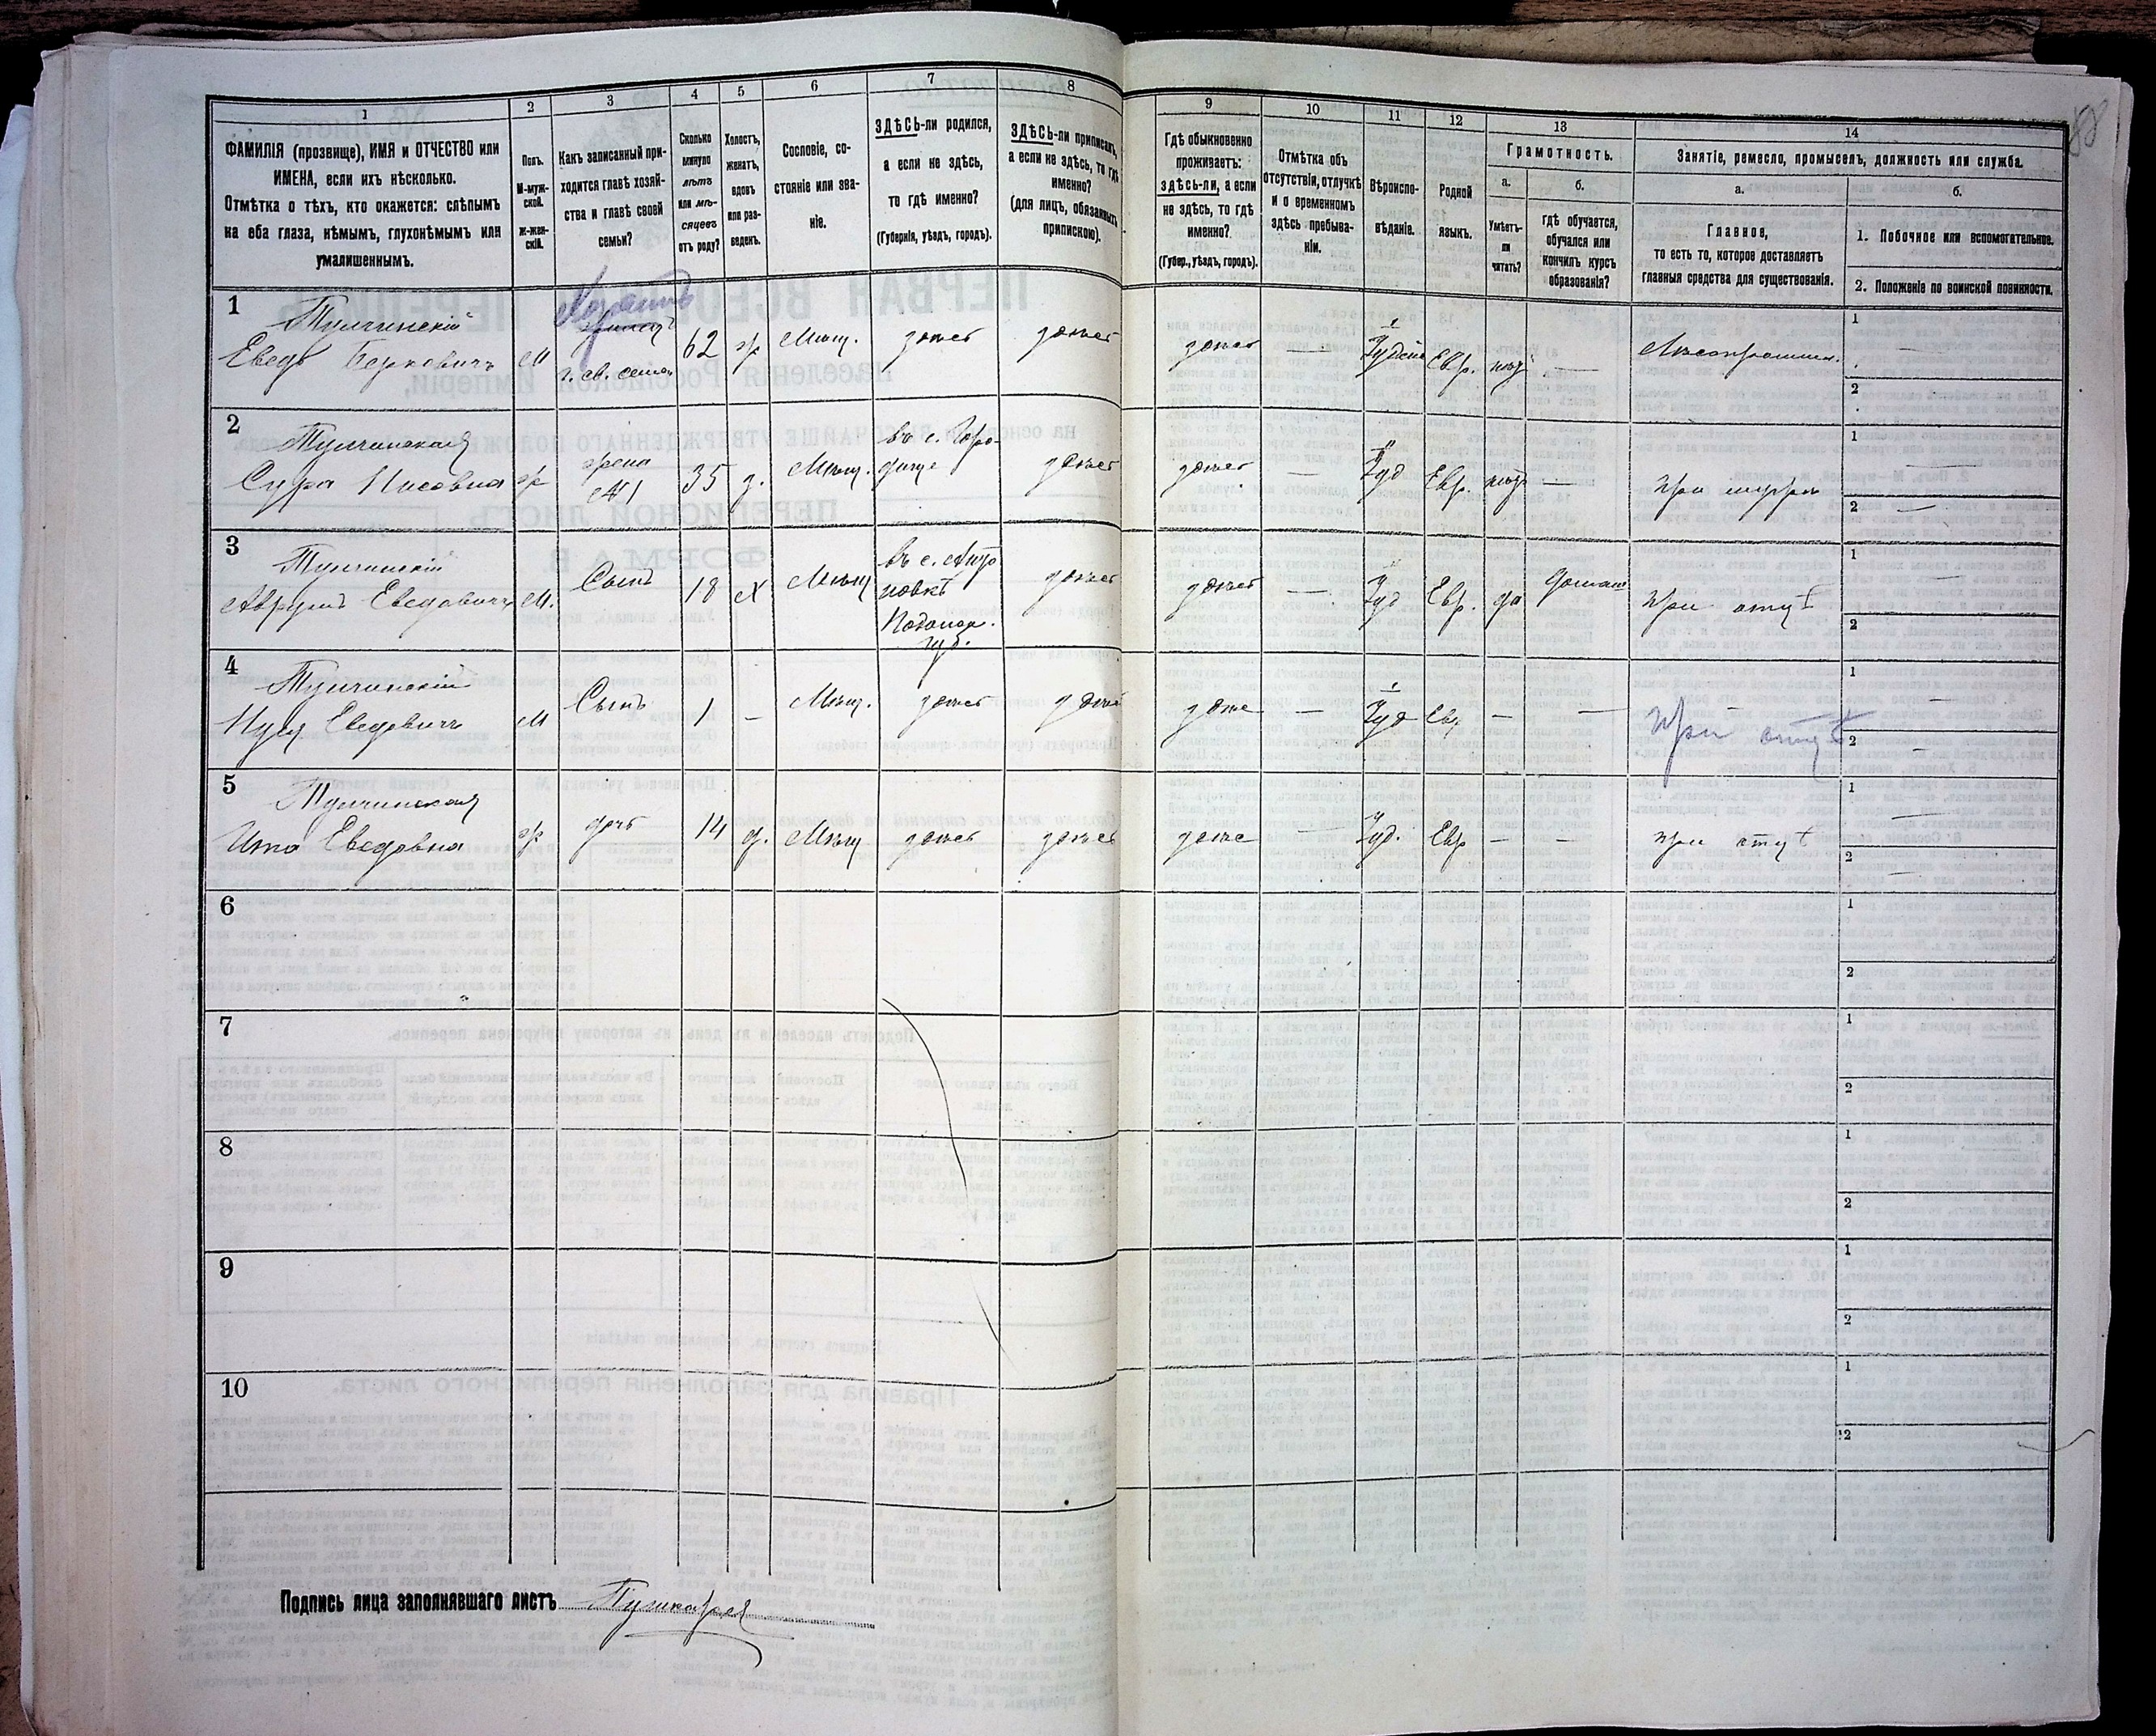 1
2
3
4
5
6
7
8
ФАМИЛІЯ (прозвище), ИМЯ и ОТЧЕСТВО или
ИМЕНА, если ихъ нѣсколько.
Отмѣтка о тѣхъ, кто окажется: слѣпымъ
на оба глаза, нѣмымъ, глухонѣмымъ или
умалишеннымъ.
Полъ.
М-муж-
ской.
Ж-жен-
скій.
Какъ записанный при-
ходится главѣ хозяй-
ства и главѣ своей
семьи?
Сколько
минуло
лѣтъ
или мѣ-
сяцевъ
отъ роду?
Холостъ,
женатъ,
вдовъ
или раз-
веденъ.
Сословіе, со-
стояніе или зва-
ніе.
ЗДѢСЬ-ли родился,
а если не здѣсь,
то гдѣ именно?
(Губернія, уѣздъ, городъ).
ЗДѢСЬ-ли приписанъ,
а если не здѣсь, то гдѣ
именно?
(для лицъ, обязанныхъ
припискою).
9
10
11
12
13
14
Гдѣ обыкновенно
проживаетъ:
здѣсь-ли, а если
не здѣсь, то гдѣ
именно?
(Губер., уѣздъ, городъ).
Отмѣтка объ
отсутствіи, отлучкѣ
и о временномъ
здѣсь пребыва-
ніи.
Вѣроиспо-
вѣданіе.
Родной
языкъ.
Грамотность.
а.
Умѣетъ-
ли
читать?
б.
гдѣ обучается,
обучался или
кончилъ курсъ
образованія?
Занятіе, ремесло, промыселъ, должность или служба.
а.
Главное,
то есть то, которое доставляетъ
главныя средства для существованія.
б.
1. Побочное или вспомогательное.
2. Положеніе по воинской повинности.
1
Тулчинскій
Евсдь Берковичъ
М
Хозяинъ
г. св. семьи
62
ж
Мѣщ.
тоже
тоже
тоже
—
Іудейс
Евр.
—
1
—
2
2
Тулчинская
Сура Иосовна
ж
жена
№1
35
з.
Мѣщ.
въ с. Горо-
дище
тоже
тоже
—
Іуд
Евр.
—
при мужѣ
1
—
2
—
3
Тулчинскій
Аврумъ Евсдовичъ
М.
Сынъ
18
х
Мѣщ
въ с.
Подольск.
губ.
тоже
тоже
—
Іуд
Евр.
да
дома
при отцѣ
1
—
2
4
Тулчинскій
Нусн Евсдовичъ
М
Сынъ
1
—
Мѣщ.
тоже
тоже
тоже
—
Іуд
Евр
—
—
при отцѣ
1
—
2
—
5
Тулчинская
Ита Евсдовна
ж
дочь
14
д.
Мѣщ
тоже
тоже
тоже
—
Іуд.
Евр
—
—
при отцѣ
1
—
2
—
6
1
2
7
1
2
8
1
2
9
1
2
10
1
2
Подпись лица заполнявшаго листъ Пушкарев